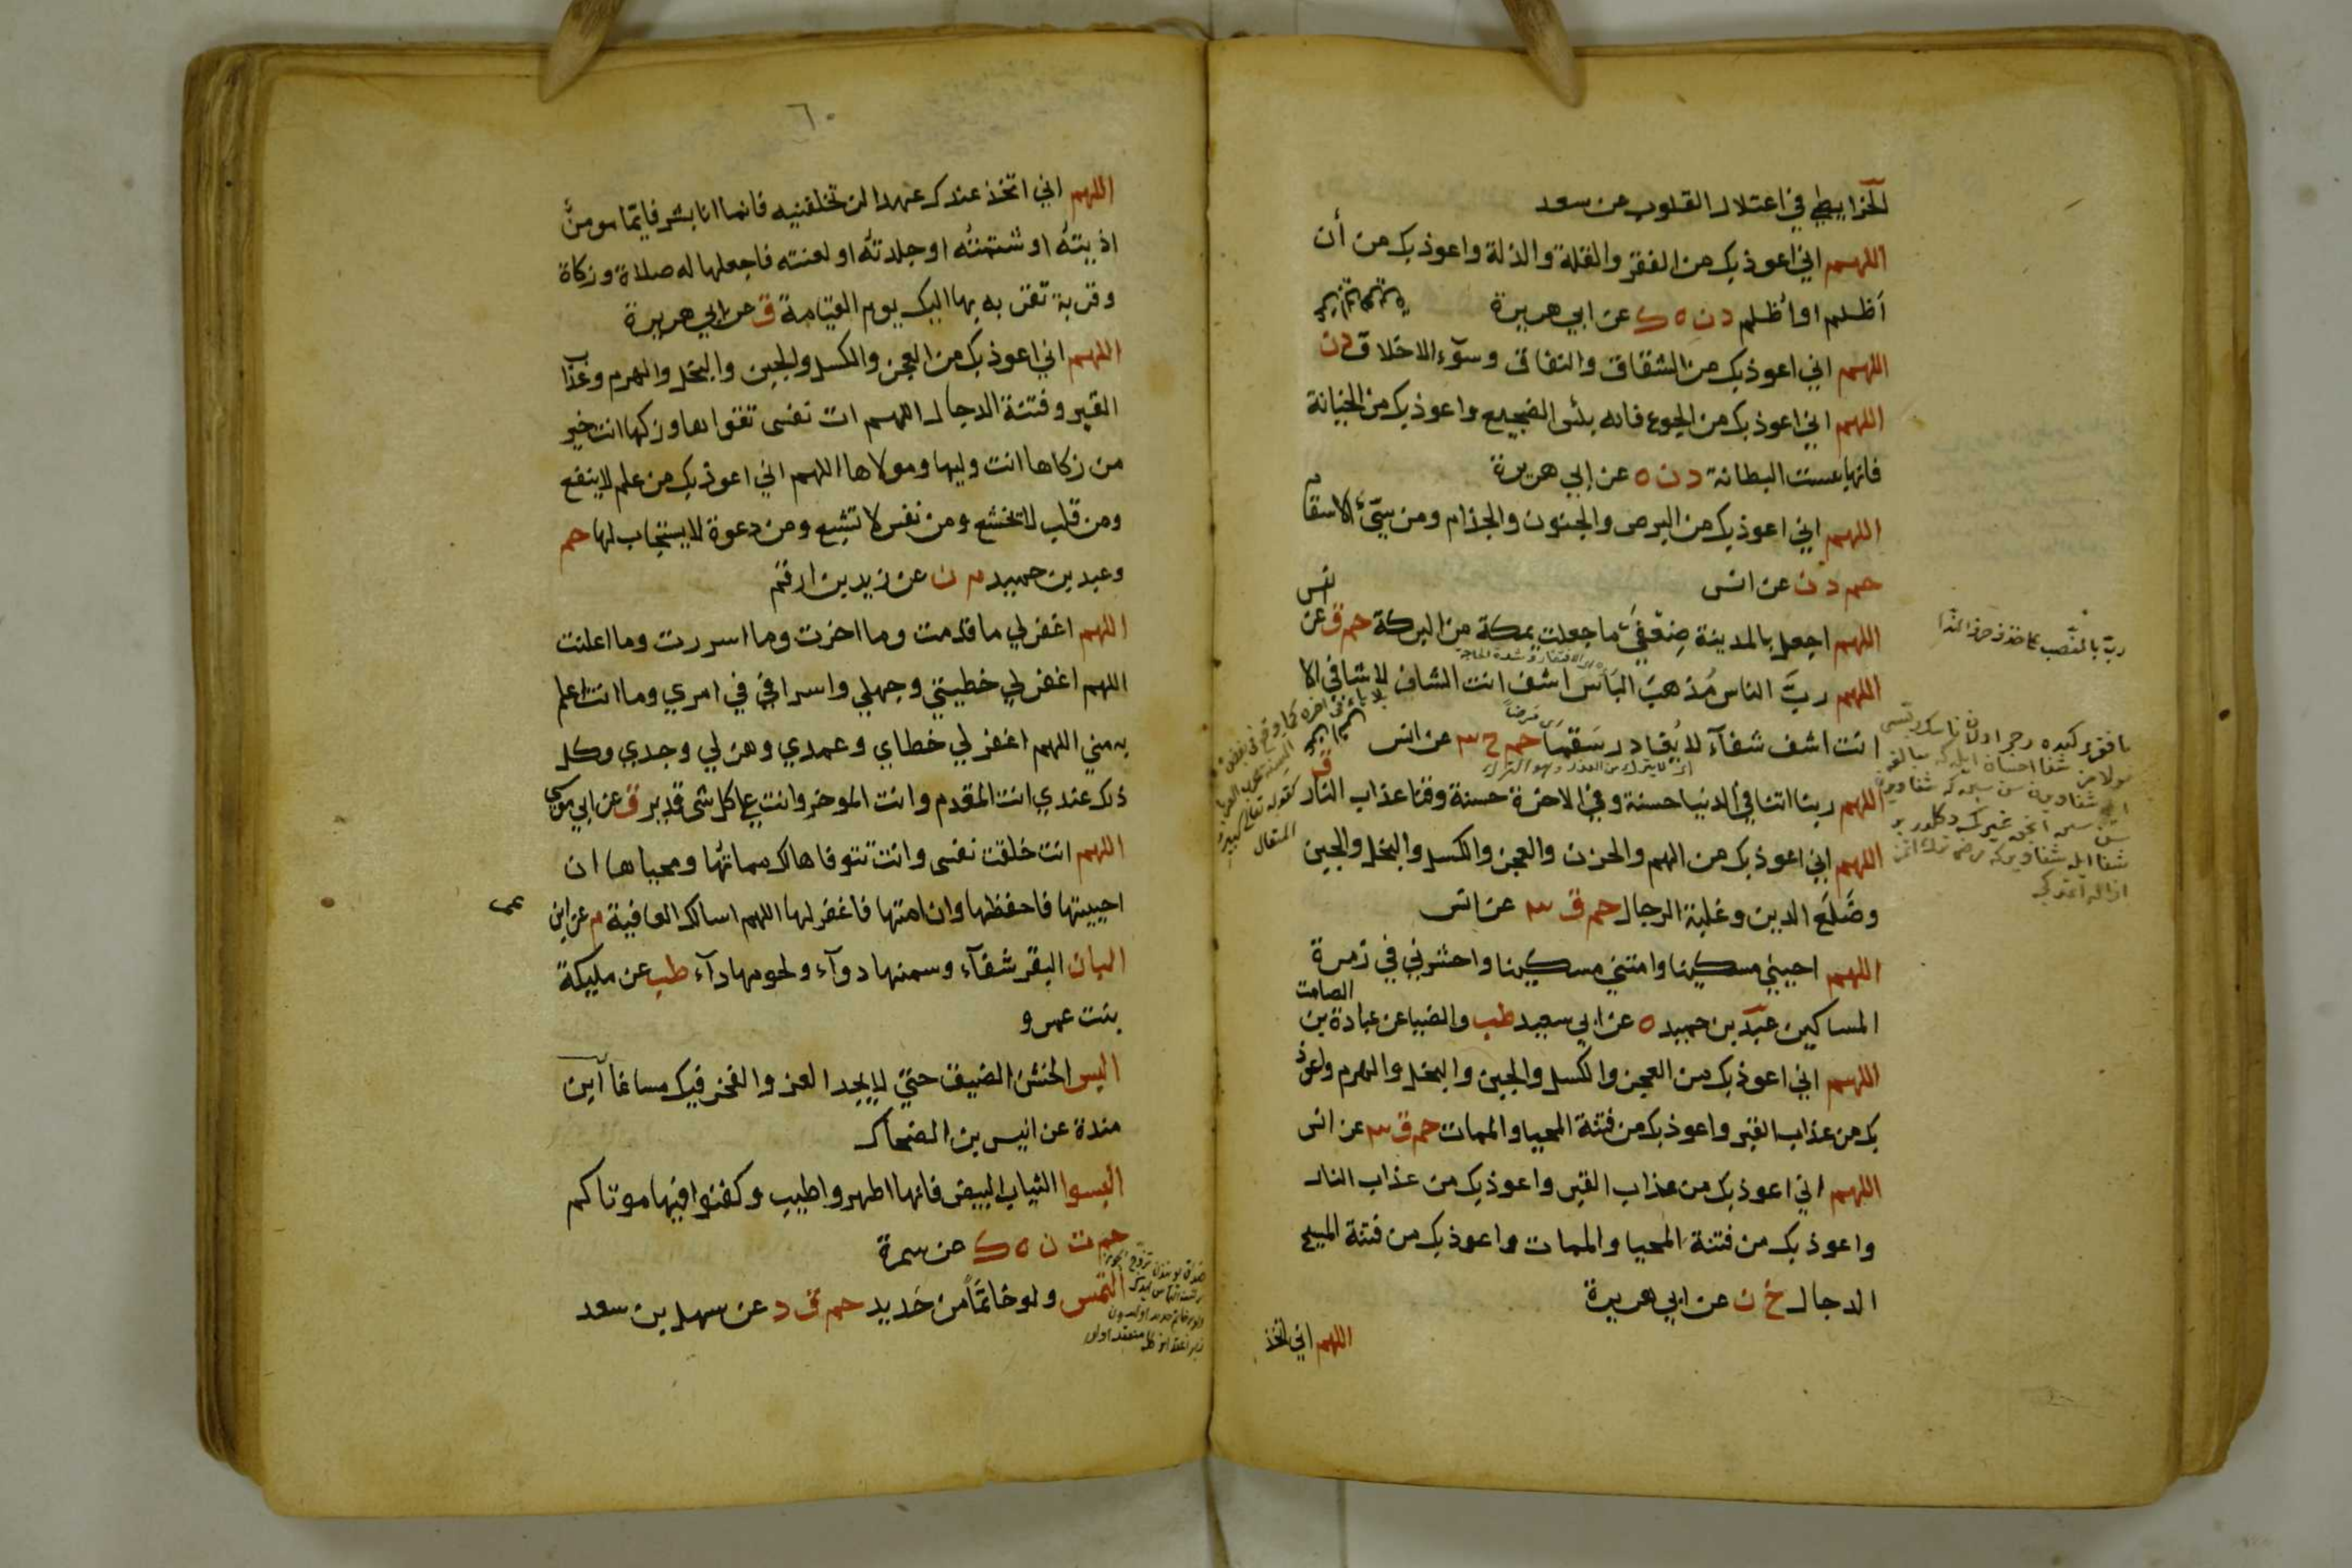 الخرايطي في اعتلال القلوب عن سعد
اللهم اني اعوذ بك من الفقر والقلة والذلة واعوذ بك من أن
أظلم او أظلم د ن ه ك عن ابي هريرة
اللهم اني اعوذ بك من الشقاق والنفاق وسوء الاخلاق د ن
اللهم اني اعوذ بك من الجوع فانه بئس الضجيع واعوذ بك من الخيانة
فانها بئست البطانة د ن ه عن ابي هريرة
اللهم اني اعوذ بك من البرص والجنون والجذام ومن سيئ الاسقام
حم د ن عن انس
اللهم اجعل بالمدينة ضعفي ما جعلت بمكة من البركة حم ق عن انس
اللهم رب الناس مذهب البأس اشف انت الشاف لا شافي الا
انت اشف شفآء لا يغادر سقما حم خ ٣ عن انس
اللهم ربنا اتنا في الدنيا حسنة وفي الاخرة حسنة وقنا عذاب النار ق
اللهم اني اعوذ بك من الهم والحزن والعجز والكسل والبخل والجبن
وضلع الدين وغلبة الرجال حم ق ٣ عن انس
اللهم احييني مسكينا وامتني مسكينا واحشرني في زمرة
المساكين عبد بن حميد ه عن ابي سعيد طب والضيا عن عبادة بن الصامت
اللهم اني اعوذ بك من العجز والكسل والجبن والبخل والهرم واعوذ
بك من عذاب القبر واعوذ بك من فتنة المحيا والممات حم ق ٣ عن انس
اللهم اني اعوذ بك من عذاب القبر واعوذ بك من عذاب النار
واعوذ بك من فتنة المحيا والممات واعوذ بك من فتنة المسيح
الدجال خ ن عن ابي هريرة
اللهم اني اتخذ
٦٠
اللهم اني اتخذ عندك عهدا لن تخلفنيه فانما انا بشر فايما مومن
اذيته او شتمته او جلدته او لعنته فاجعلها له صلاة وزكاة
وقربة تقربه بها اليك يوم القيامة ق عن ابي هريرة
اللهم اني اعوذ بك من العجز والكسل والجبن والبخل والهرم وعذاب
القبر وفتنة الدجال اللهم ات نفسي تقواها وزكها انت خير
من زكاها انت وليها ومولاها اللهم اني اعوذ بك من علم لا ينفع
ومن قلب لا يخشع ومن نفس لا تشبع ومن دعوة لا يستجاب لها حم
وعبد بن حميد م ن عن زيد بن ارقم
اللهم اغفر لي ما قدمت وما اخرت وما اسررت وما اعلنت
اللهم اغفر لي خطيئتي وجهلي واسرافي في امري وما انت اعلم
به مني اللهم اغفر لي خطاي وعمدي وهزلي وجدي وكل
ذلك عندي انت المقدم وانت الموخر وانت على كل شى قدير ق عن ابي موسى
اللهم انت خلقت نفسى وانت تتوفاها لك مماتها ومحياها ان
احييتها فاحفظها وان امتها فاغفر لها اللهم اسالك العافية م عن ابن
عمر
البان البقر شفآء وسمنها دوآء ولحومها دآء طب عن مليكة
بنت عمرو
البس الخشن الضيق حتى لا يجد العز والفخر فيك مساغا ابن
مندة عن انيس بن الضحاك
البسوا الثياب البيض فانها اطهر واطيب وكفنوا فيها موتاكم
حم ت ن ه ك عن سمرة
التمس ولو خاتما من حديد حم ق د عن سهل بن سعد